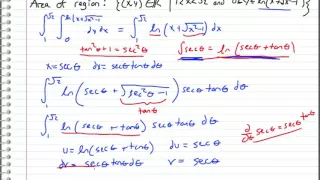 Area of region: {(x,y)∈R | 1≤x≤√2 and 0≤y≤ln(x+√x²-1)}
∫₁^√2 ∫₀^ln(x+√x²-1) dy dx = ∫₁^√2 ln(x+√x²-1) dx
tan²θ+1=sec²θ
√secθ = ln(secθ+tanθ)
x=secθ dx=secθtanθdθ
∫₁^√2 ln(secθ+√sec²θ-1) secθtanθ dθ
tanθ
∫₁^√2 ln(secθ+tanθ) secθtanθ dθ
∂/∂θ secθ=secθ tanθ
u=ln(secθ+tanθ) du=secθ
dv=secθtanθdθ v=secθ